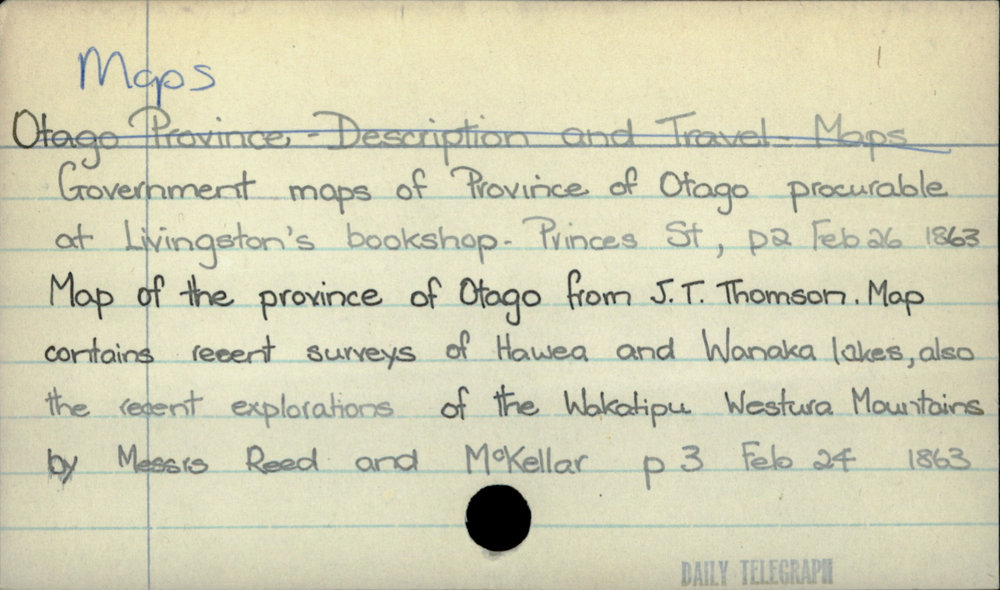 Maps
Otago Province - Description and Travel - Maps
Government maps of Province of Otago procurable
at Livingston's bookshop - Princes St, p2 Feb 26 1863
Map of the province of Otago from J.T. Thomson. Map
contains recent surveys of Hawea and Wanaka lakes, also
the recent explorations of the Wakatipu Westura Mountains
by Messrs Reed and McKellar p 3 Feb 24 1863
DAILY TELEGRAPH